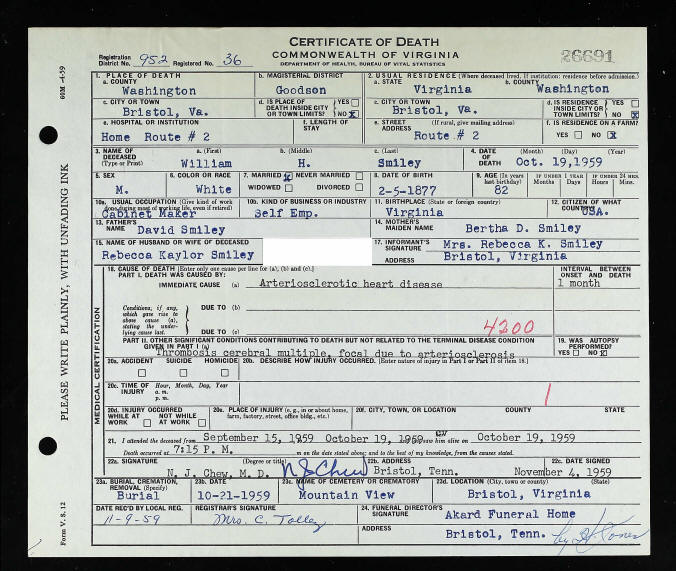 CERTIFICATE OF DEATH
COMMONWEALTH OF VIRGINIA
DEPARTMENT OF HEALTH, BUREAU OF VITAL STATISTICS
Registration District No. 952 Registered No. 36
26691
60M -4-59
1. PLACE OF DEATH
a. COUNTY
Washington
b. MAGISTERIAL DISTRICT
Goodson
2. USUAL RESIDENCE (Where deceased lived. If institution: residence before admission.)
a. STATE
Virginia
b. COUNTY
Washington
c. CITY OR TOWN
Bristol, Va.
d. IS PLACE OF DEATH INSIDE CITY OR TOWN LIMITS? YES NO X
c. CITY OR TOWN
Bristol, Va.
d. IS RESIDENCE INSIDE CITY OR TOWN LIMITS? YES NO X
e. HOSPITAL OR INSTITUTION
Home Route # 2
f. LENGTH OF STAY
e. STREET ADDRESS (If rural, give mailing address)
Route # 2
f. IS RESIDENCE ON A FARM?
YES NO X
3. NAME OF DECEASED (Type or Print)
a. (First) William
b. (Middle) H.
c. (Last) Smiley
4. DATE OF DEATH (Month) (Day) (Year)
Oct. 19,1959
5. SEX
M.
6. COLOR OR RACE
White
7. MARRIED X NEVER MARRIED
WIDOWED DIVORCED
8. DATE OF BIRTH
2-5-1877
9. AGE (In years last birthday)
82
IF UNDER 1 YEAR Months Days
IF UNDER 24 HRS. Hours Mins.
10a. USUAL OCCUPATION (Give kind of work done during most of working life, even if retired)
Cabinet Maker
10b. KIND OF BUSINESS OR INDUSTRY
Self Emp.
11. BIRTHPLACE (State or foreign country)
Virginia
12. CITIZEN OF WHAT COUNTRY?
USA.
13. FATHER'S NAME
David Smiley
14. MOTHER'S MAIDEN NAME
Bertha D. Smiley
15. NAME OF HUSBAND OR WIFE OF DECEASED
Rebecca Kaylor Smiley
17. INFORMANT'S SIGNATURE
Mrs. Rebecca K. Smiley
ADDRESS
Bristol, Virginia
MEDICAL CERTIFICATION
18. CAUSE OF DEATH [Enter only one cause per line for (a), (b) and (c).]
PART I. DEATH WAS CAUSED BY:
IMMEDIATE CAUSE (a) Arteriosclerotic heart disease
INTERVAL BETWEEN ONSET AND DEATH
1 month
Conditions, if any, which gave rise to above cause (a), stating the underlying cause last.
DUE TO (b)
DUE TO (c)
4200
PART II. OTHER SIGNIFICANT CONDITIONS CONTRIBUTING TO DEATH BUT NOT RELATED TO THE TERMINAL DISEASE CONDITION GIVEN IN PART I (a)
Thrombosis cerebral multiple, focal due to arteriosclerosis
19. WAS AUTOPSY PERFORMED?
YES NO X
20a. ACCIDENT SUICIDE HOMICIDE
20b. DESCRIBE HOW INJURY OCCURRED. [Enter nature of injury in Part I or Part II of item 18.]
20c. TIME OF INJURY Hour, Month, Day, Year
a. m.
p. m.
1
20d. INJURY OCCURRED
WHILE AT WORK NOT WHILE AT WORK
20e. PLACE OF INJURY (e. g., in or about home, farm, factory, street, office bldg., etc.)
20f. CITY, TOWN, OR LOCATION COUNTY STATE
21. I attended the deceased from September 15, 1959 October 19, 1959 saw him alive on October 19, 1959
Death occurred at 7:15 P. M. m on the date stated above; and to the best of my knowledge, from the causes stated.
22a. SIGNATURE (Degree or title)
N. J. Chew, M. D. N J Chew
22b. ADDRESS
Bristol, Tenn.
22c. DATE SIGNED
November 4, 1959
23a. BURIAL, CREMATION, REMOVAL (Specify)
Burial
23b. DATE
10-21-1959
23c. NAME OF CEMETERY OR CREMATORY
Mountain View
23d. LOCATION (City, town or county) (State)
Bristol, Virginia
DATE REC'D BY LOCAL REG.
11-9-59
REGISTRAR'S SIGNATURE
Mrs. C. Talley
24. FUNERAL DIRECTOR'S SIGNATURE
Akard Funeral Home
ADDRESS
Bristol, Tenn.
PLEASE WRITE PLAINLY, WITH UNFADING INK
Form V. S. 12